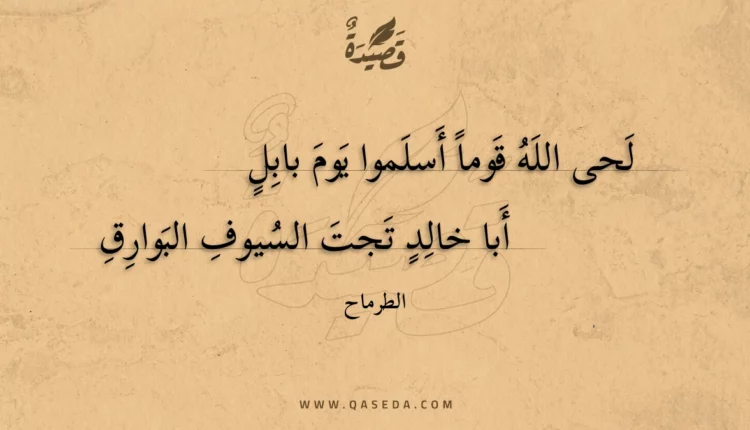 قَصِيْدَةٌ
لَحى اللَهُ قَوماً أَسلَموا يَومَ بابِلٍ
أَبا خالِدٍ تَجتَ السُيوفِ البَوارِقِ
الطرماح
WWW.QASEDA.COM